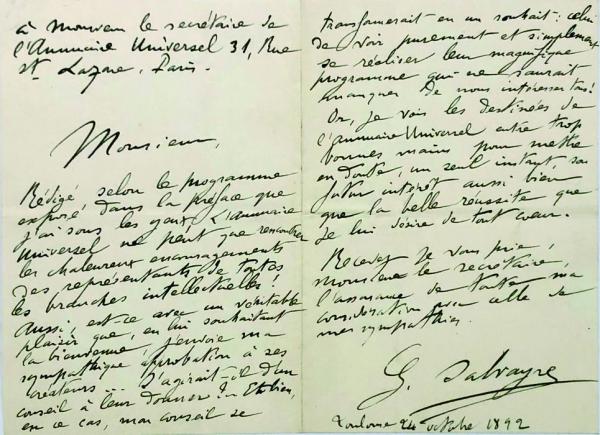 à Monsieur le secrétaire de
l'Annuaire Universel 31, Rue
St Lazare. Paris.
Monsieur,
Rédigé, selon le programme
exposé, dans la préface que
j'ai sous les yeux, L'annuaire
Universel ne peut que rencontrer
les chaleureux encouragements
des représentants de toutes
les branches intellectuelles!
Aussi, est-ce avec un véritable
plaisir que, en lui souhaitant
la bienvenue, j'envoie ma
sympathique approbation à ses
créateurs... S'agirait-il d'un
conseil à leur donner?... Eh bien,
en ce cas, mon conseil se
transformerait en un souhait: celui
de voir purement et simplement
se réaliser leur magnifique
programme qui ne saurait
manquer de nous intéresser tous!
Or, je vois les destinées de
l'annuaire Universel entre trop
bonnes mains pour mettre
en doute, un seul instant, son
futur intérêt aussi bien
que la belle réussite que
je lui désire de tout coeur.
Recevez je vous prie,
Monsieur le secrétaire,
l'assurance de toute ma
considération avec celle de
mes sympathies.
G. Salvayre
Toulouse 24 octobre 1892